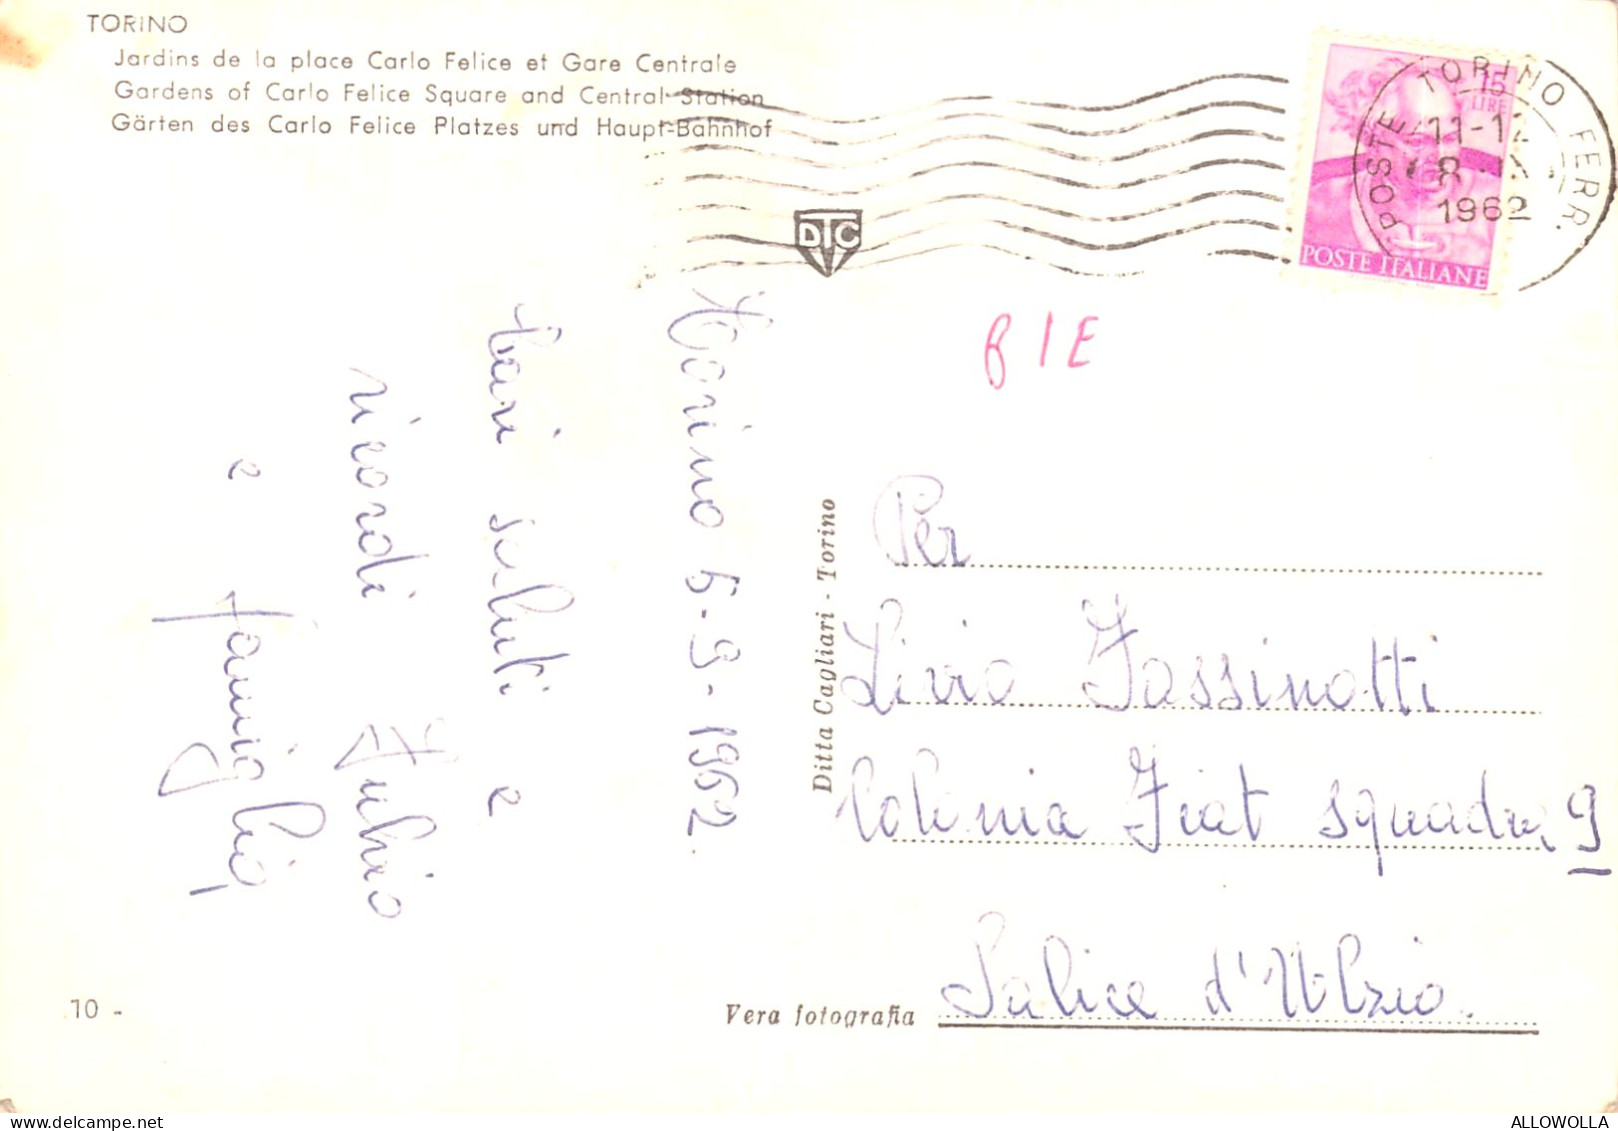 TORINO
Jardins de la place Carlo Felice et Gare Centrale
Gardens of Carlo Felice Square and Central Station
Gärten des Carlo Felice Platzes und Haupt-Bahnhof
15
LIRE
POSTE ITALIANE
POSTE TORINO FERR.
11-12
8
1962
DTC
B I E
Torino 5-9-1962.
Cari saluti e
ricordi Fulvio
e famiglia,
Ditta Cagliari - Torino
Per
Livio Fassinotti
Colonia Fiat squadra 9
Salice d'Ulzio.
10 -
Vera fotografia
ALLOWOLLA